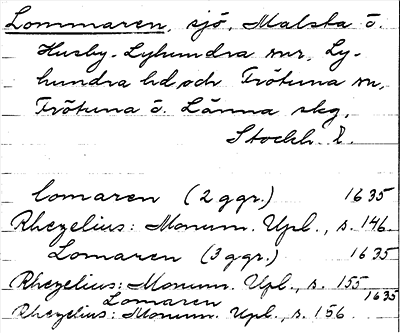 Lommaren, sjö, Malsta o.
Husby-Lyhundra snr, Ly-
hundra hd, och Frötuna sn,
Frötuna o. Länna skg,
Stockh. l.
lomaren (2 ggr.) 1635
Rhezelius: Monum. Upl., s. 146.
Lomaren (3 ggr.) 1635
Rhezelius: Monum. Upl., s. 155
Lomaren 1635
Rhezelius: Monum. Upl., s. 156.